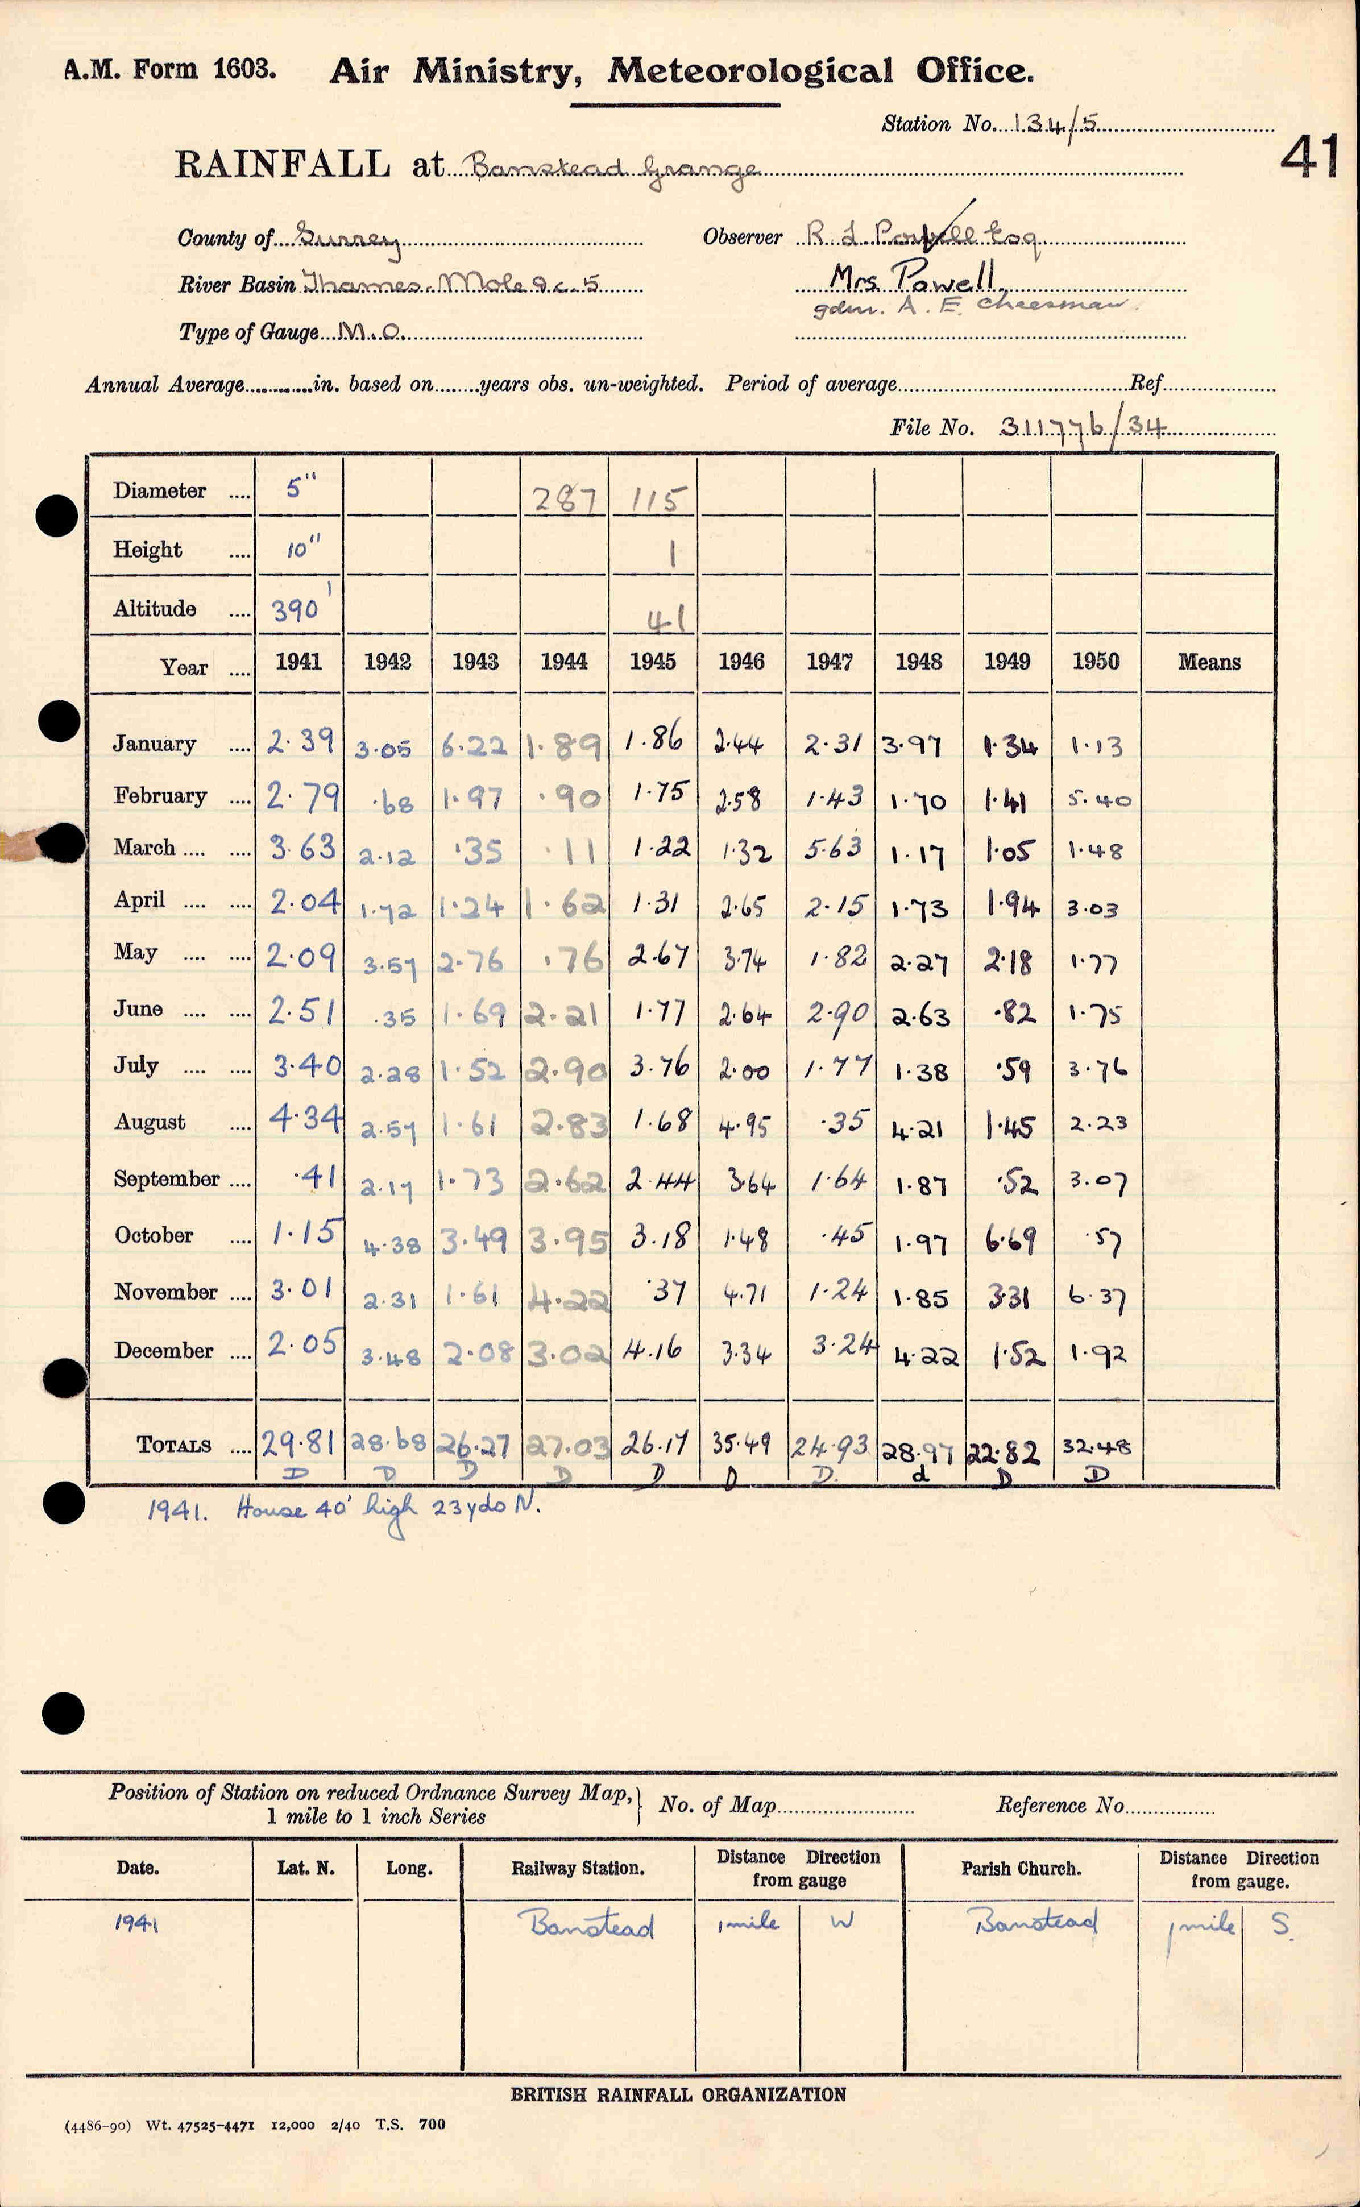 A.M. Form 1603. Air Ministry, Meteorological Office.
Station No. 134/5
41
RAINFALL at Banstead Grange
County of Surrey Observer R L Powell Esq
River Basin Thames. Mole &c. 5 Mrs Powell.
gdnr. A. E. Cheesman.
Type of Gauge M.O.
Annual Average............in. based on........years obs. un-weighted. Period of average..............................Ref...............
File No. 311776/34
Diameter .... 5" 287 115
Height .... 10" 1
Altitude .... 390' 41
Year .... 1941 1942 1943 1944 1945 1946 1947 1948 1949 1950 Means
January .... 2.39 3.05 6.22 1.89 1.86 2.44 2.31 3.97 1.34 1.13
February .... 2.79 .68 1.97 .90 1.75 2.58 1.43 1.70 1.41 5.40
March .... .... 3.63 2.12 .35 .11 1.22 1.32 5.63 1.17 1.05 1.48
April .... .... 2.04 1.72 1.24 1.62 1.31 2.65 2.15 1.73 1.94 3.03
May .... .... 2.09 3.57 2.76 .76 2.67 3.74 1.82 2.27 2.18 1.77
June .... .... 2.51 .35 1.69 2.21 1.77 2.64 2.90 2.63 .82 1.75
July .... .... 3.40 2.28 1.52 2.90 3.76 2.00 1.77 1.38 .59 3.76
August .... 4.34 2.57 1.61 2.83 1.68 4.95 .35 4.21 1.45 2.23
September .... .41 2.17 1.73 2.62 2.44 3.64 1.64 1.87 .52 3.07
October .... 1.15 4.38 3.49 3.95 3.18 1.48 .45 1.97 6.69 .57
November .... 3.01 2.31 1.61 4.22 .37 4.71 1.24 1.85 3.31 6.37
December .... 2.05 3.48 2.08 3.02 4.16 3.34 3.24 4.22 1.52 1.92
TOTALS .... 29.81 28.68 26.27 27.03 26.17 35.49 24.93 28.97 22.82 32.48
D D D D D D D. d D D
1941. House 40' high 23 yds N.
Position of Station on reduced Ordnance Survey Map,} No. of Map........................ Reference No................
1 mile to 1 inch Series
Date. Lat. N. Long. Railway Station. Distance from gauge Direction Parish Church. Distance from gauge. Direction
1941 Banstead 1 mile W Banstead 1 mile S.
BRITISH RAINFALL ORGANIZATION
(4486-90) Wt. 47525-4471 12,000 2/40 T.S. 700